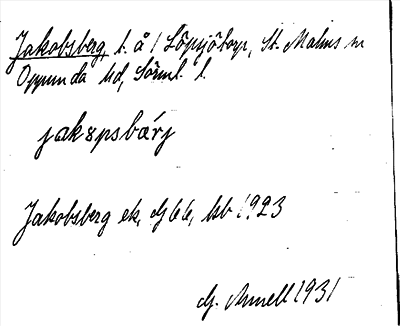 Jakobsberg, l. å 1 Löpsjötorp, St. Malms sn
Oppunda hd, Sörml. l.
jakɛpsbárj
Jakobsberg ek, G 66, kb 1923
G. Annell 1931